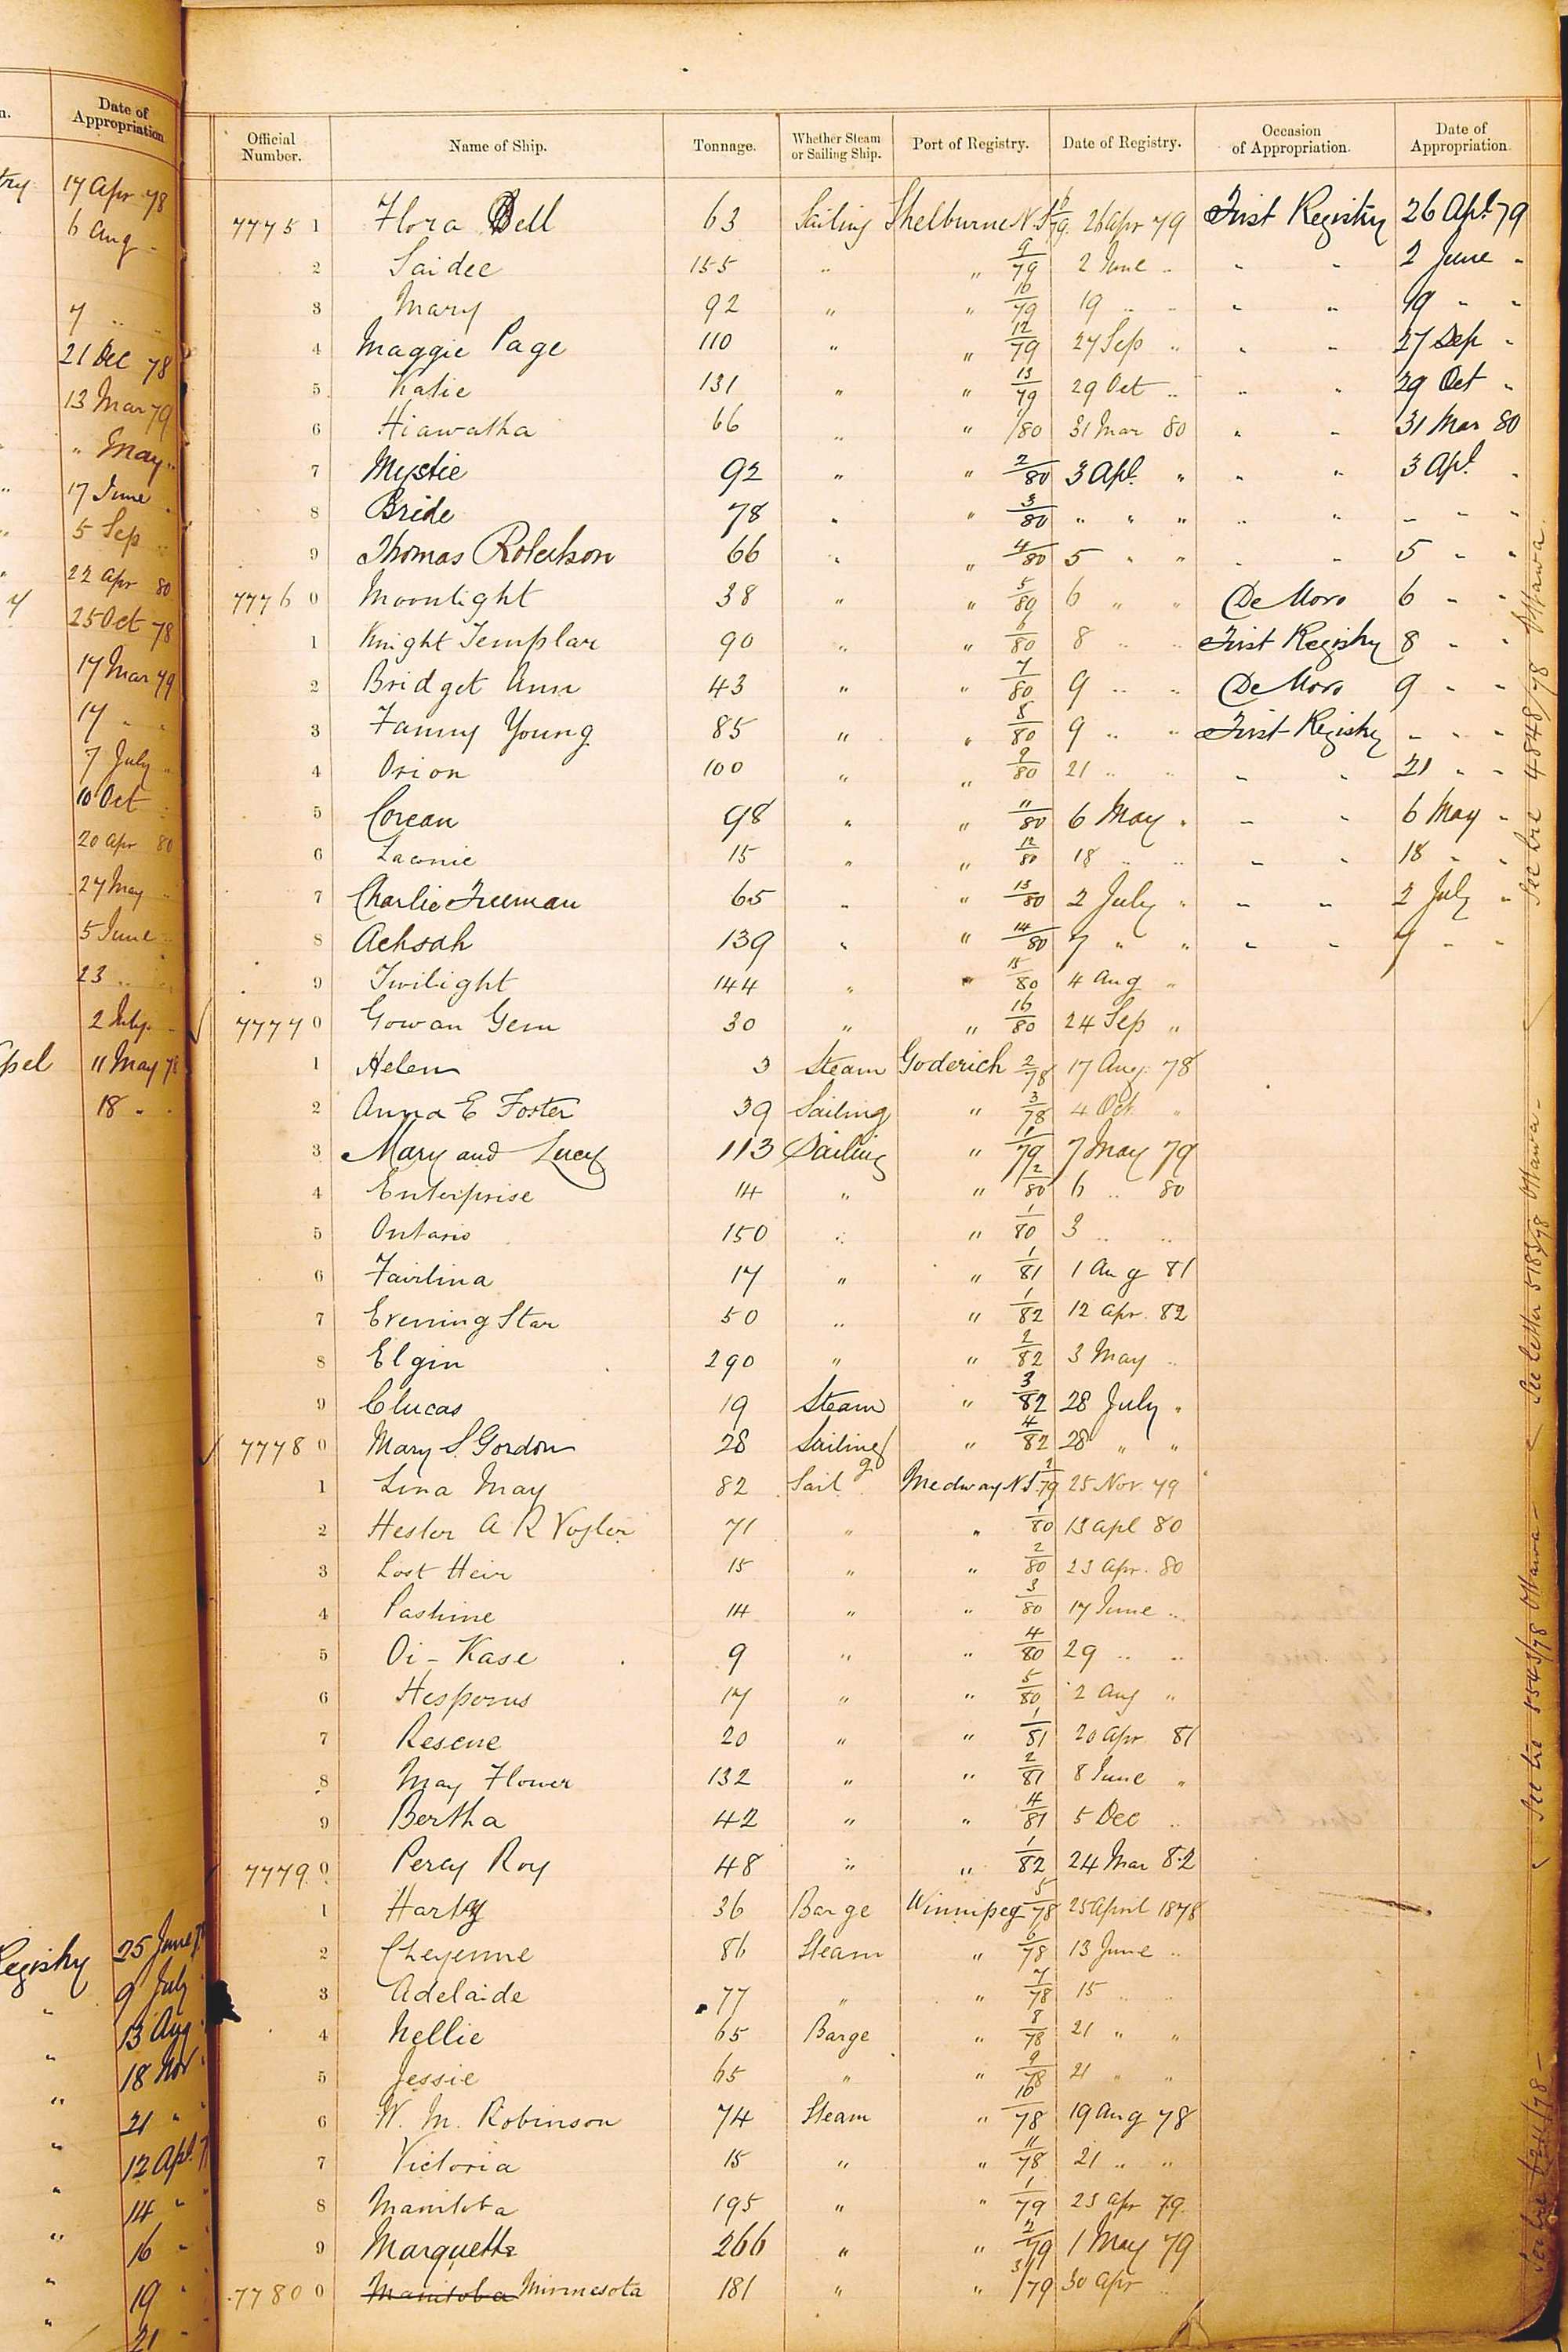 n.
Date of Appropriation
17 Apr 78
6 Aug "
7 " "
21 Dec 78
13 Mar 79
" May "
17 June "
5 Sep "
22 Apr 80
25 Oct 78
17 Mar 79
17 " "
7 July "
10 Oct "
20 Apr 80
27 May "
5 June "
23 " "
2 July "
11 May 78
18 " "
Registry 25 June
" 9 July
" 13 Aug
" 18 Nov
" 21 "
" 12 Apl
" 14 "
" 16 "
" 19 "
" 21 "
Official Number. Name of Ship. Tonnage. Whether Steam or Sailing Ship. Port of Registry. Date of Registry. Occasion of Appropriation. Date of Appropriation.
7775 1 Flora Bell 63 Sailing Shelburne N.S. 6/79 26 Apr 79 First Registry 26 Apl. 79
2 Saidee 155 " " 9/79 2 June " " " 2 June "
3 Mary 92 " " 10/79 19 " " " " 19 " "
4 Maggie Page 110 " " 12/79 27 Sep " " " 27 Sep "
5 Katie 131 " " 13/79 29 Oct " " " 29 Oct "
6 Hiawatha 66 " " 1/80 31 Mar 80 " " 31 Mar 80
7 Mystie 92 " " 2/80 3 Apl. " " " 3 Apl. "
8 Bride 78 " " 3/80 " " " " " " " "
9 Thomas Robertson 66 " " 4/80 5 " " " " 5 " "
7776 0 Moonlight 38 " " 5/80 6 " " De Moro 6 " "
1 Knight Templar 90 " " 6/80 8 " " First Registry 8 " "
2 Bridget Ann 43 " " 7/80 9 " " De Moro 9 " "
3 Fanny Young 85 " " 8/80 9 " " First Registry " " "
4 Orion 100 " " 9/80 21 " " " " 21 " "
5 Corean 98 " " 11/80 6 May " " " 6 May "
6 Laconic 15 " " 12/80 18 " " " " 18 " "
7 Charlie Freeman 65 " " 13/80 2 July " " " 2 July "
8 Achsah 139 " " 14/80 7 " " " " 7 " "
9 Twilight 144 " " 15/80 4 Aug "
7777 0 Gowan Gem 30 " " 16/80 24 Sep "
1 Helen 3 Steam Goderich 2/78 17 Aug 78
2 Anna E Foster 39 Sailing " 3/78 4 Oct "
3 Mary and Lucy 113 Sailing " 1/79 7 May 79
4 Enterprise 14 " " 2/80 6 " 80
5 Ontario 150 " " 1/80 3 " "
6 Fairlina 17 " " 1/81 1 Aug 81
7 Evening Star 50 " " 1/82 12 Apr. 82
8 Elgin 290 " " 2/82 3 May "
9 Clucas 19 Steam " 3/82 28 July "
7778 0 Mary S. Gordon 28 Sailing " 4/82 28 " "
1 Lina May 82 Sailg Medway N.S. 2/79 25 Nov. 79
2 Hester A R Vogler 71 " " 1/80 13 Apl 80
3 Lost Heir 15 " " 2/80 23 Apr. 80
4 Pastime 14 " " 3/80 17 June "
5 Oi-Kase 9 " " 4/80 29 " "
6 Hesperus 17 " " 5/80 2 Aug "
7 Rescue 20 " " 1/81 20 Apr 81
8 May Flower 132 " " 2/81 8 June "
9 Bertha 42 " " 4/81 5 Dec "
7779 0 Percy Roy 48 " " 1/82 24 Mar 82
1 Harty 36 Barge Winnipeg 5/78 25 April 1878
2 Cheyenne 86 Steam " 6/78 13 June "
3 Adelaide 77 " " 7/78 15 " "
4 Nellie 65 Barge " 8/78 21 " "
5 Jessie 65 " " 9/78 21 " "
6 W. M. Robinson 74 Steam " 10/78 19 Aug 78
7 Victoria 15 " " 11/78 21 " "
8 Manitoba 195 " " 1/79 23 Apr 79
9 Marquette 266 " " 2/79 1 May 79
7780 0 Manitoba Minnesota 181 " " 3/79 30 Apr "
4848/78 Ottawa
See letter 5183/78 Ottawa
8543/78 Ottawa